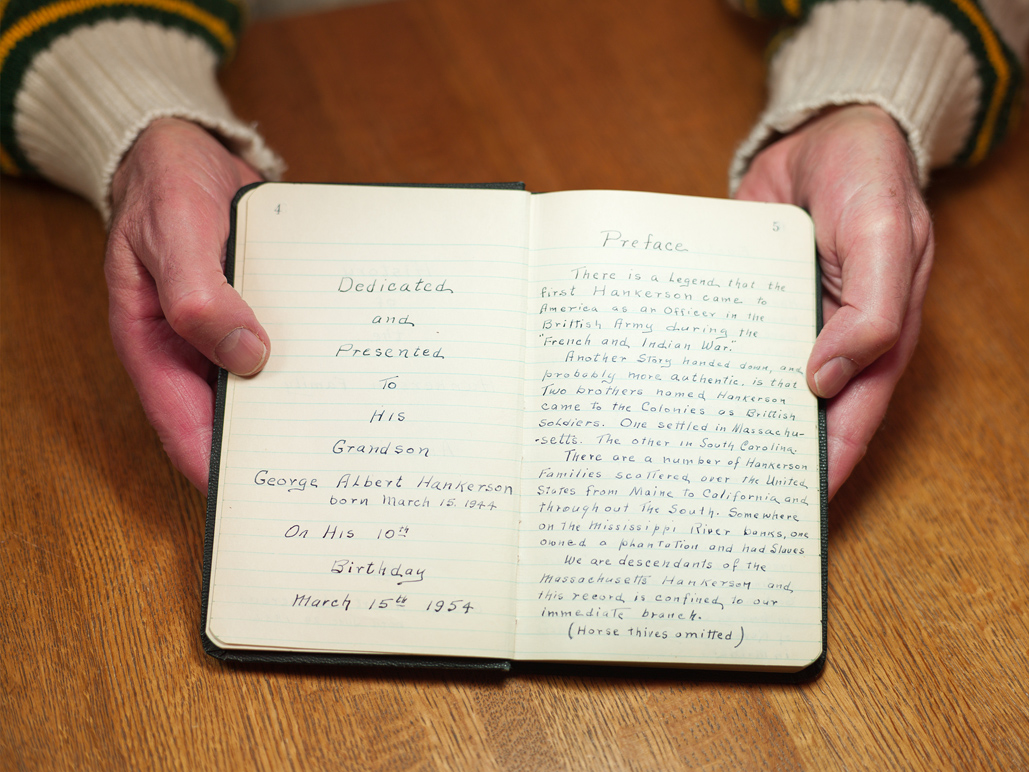 4
Dedicated
and
Presented
To
His
Grandson
George Albert Hankerson
born March 15, 1944
On His 10th
Birthday
March 15th 1954
5
Preface
There is a Legend that the
first Hankerson came to
America as an Officer in the
Brittish Army during the
"French and Indian War."
Another Story handed down, and
probably more authentic, is that
Two brothers named Hankerson
came to the Colonies as Brittish
soldiers. One settled in Massachu-
-setts. The other in South Carolina.
There are a number of Hankerson
Families scattered over the United
States from Maine to California and
through out The South. Somewhere
on The Mississippi River banks, one
owned a phantation and had Slaves
We are descendants of the
Massachusetts Hankerson and
this record is confined to our
immediate branch.
(Horse thives omitted)